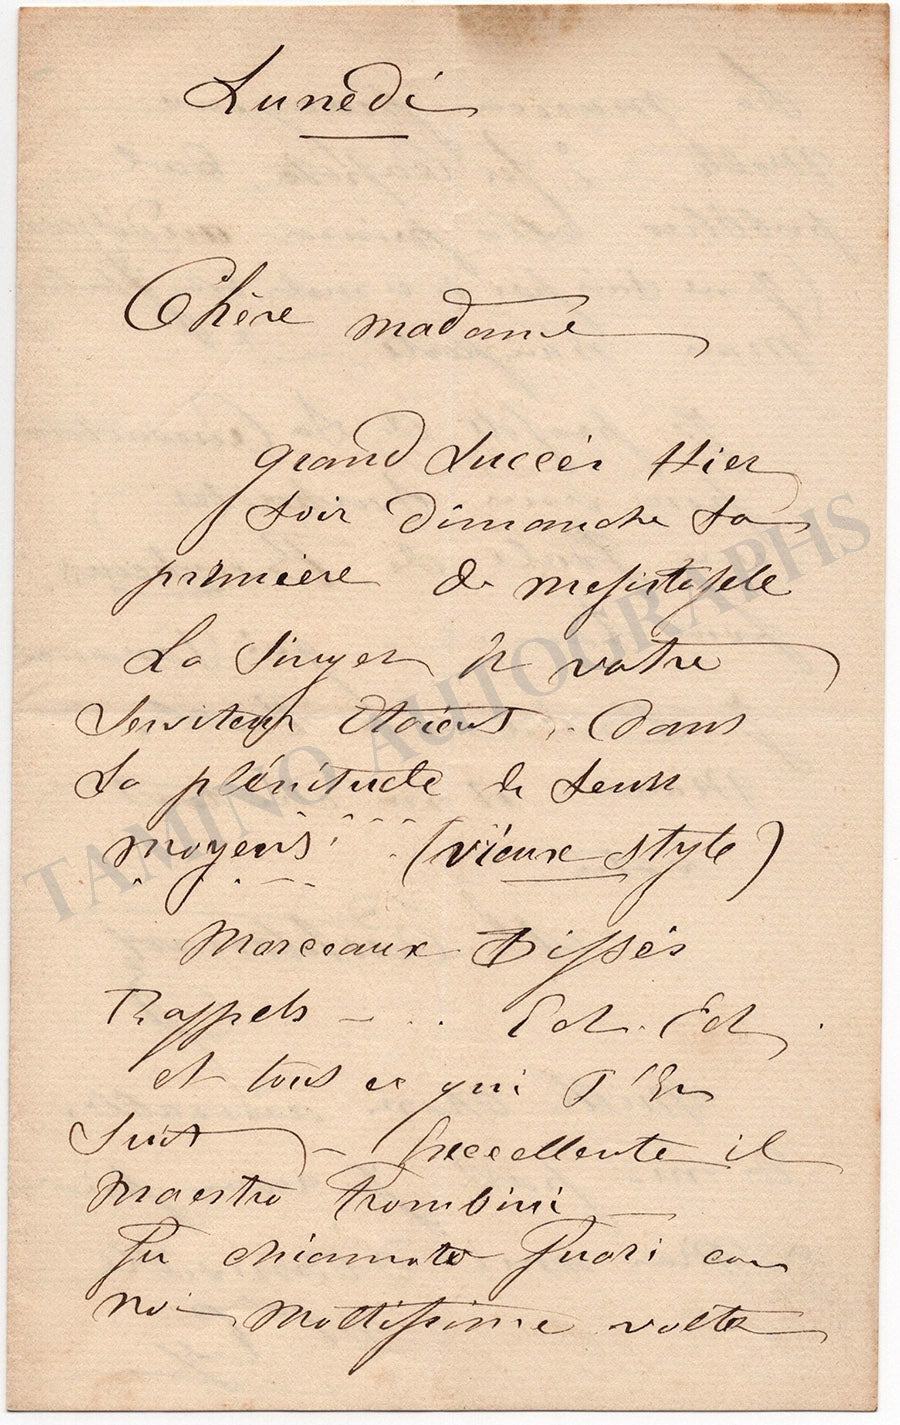 Lunedi
Chère madame
grand succès Hier
soir Dimanche La
première de mefistofele
La Singer et votre
serviteur Etaient ... Dans
La plénitude de Leurs
moyens ... (vieux style)
Morceaux Bissés
Rappels — .. Ect. Ect.
et tous ce qui s'En
suit — Eccellente il
Maestro Trombini
Fu chiamato Fuori con
noi Moltissime volte
TAMINO AUTOGRAPHS